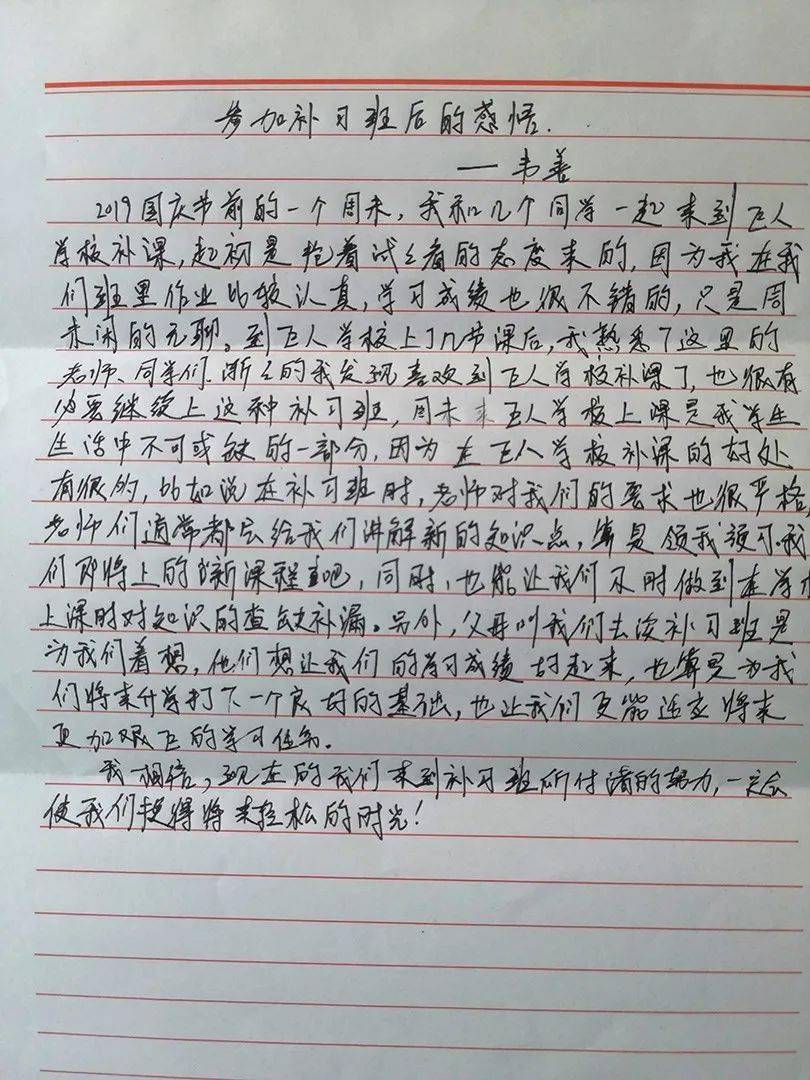 参加补习班后的感悟.
——韦善
2019国庆节前的一个周末,我和几个同学一起来到飞人
学校补课,起初是抱着试试看的态度来的,因为我在我
们班里作业比较认真,学习成绩也很不错的,只是周
末闲的无聊。到飞人学校上了几节课后,我熟悉了这里的
老师、同学们.渐渐的我发现喜欢到飞人学校补课了,也很有
必要继续上这种补习班,周末来飞人学校上课是我学生
生活中不可或缺的一部分,因为在飞人学校补课的好处
有很多的,比如说在补习班时,老师对我们的要求也很严格,
老师们通常都会给我们讲解新的知识点,算是领我预习我
们即将上的新课程吧,同时,也能让我们及时做到在学
上课时对知识的查缺补漏。另外,父母叫我们去读补习班是
为我们着想,他们想让我们的学习成绩好起来,也算是为我
们将来升学打下一个良好的基础,也让我们更能适应将来
更加艰巨的学习任务。
我相信,现在的我们来到补习班所付诸的努力,一定会
使我们换得将来轻松的时光!